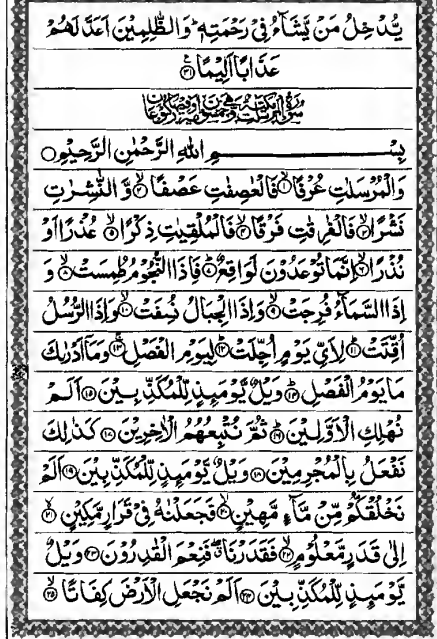 يُّدْخِلُ مَنْ يَّشَآءُ فِيْ رَحْمَتِهٖ ؕ وَالظّٰلِمِيْنَ اَعَدَّ لَهُمْ
عَذَابًا اَلِيْمًا ۟﴿۳۱﴾
سُوْرَةُ الْمُرْسَلٰتِ مَكِّيَّةٌ وَّهِيَ خَمْسُوْنَ اٰيَةً
بِسْمِ اللّٰهِ الرَّحْمٰنِ الرَّحِيْمِ ○
وَالْمُرْسَلٰتِ عُرْفًا ﴿۱﴾ فَالْعٰصِفٰتِ عَصْفًا ﴿۲﴾ وَّ النّٰشِرٰتِ
نَشْرًا ﴿۳﴾ فَالْفٰرِقٰتِ فَرْقًا ﴿۴﴾ فَالْمُلْقِيٰتِ ذِكْرًا ﴿۵﴾ عُذْرًا اَوْ
نُذْرًا ﴿۶﴾ اِنَّمَا تُوْعَدُوْنَ لَوَاقِعٌ ﴿۷﴾ فَاِذَا النُّجُوْمُ طُمِسَتْ ﴿۸﴾ وَ
اِذَا السَّمَآءُ فُرِجَتْ ﴿۹﴾ وَاِذَا الْجِبَالُ نُسِفَتْ ﴿۱۰﴾ وَاِذَا الرُّسُلُ
اُقِّتَتْ ﴿۱۱﴾ لِاَيِّ يَوْمٍ اُجِّلَتْ ﴿۱۲﴾ لِيَوْمِ الْفَصْلِ ﴿۱۳﴾ وَمَاۤ اَدْرٰىكَ
مَا يَوْمُ الْفَصْلِ ﴿۱۴﴾ وَيْلٌ يَّوْمَئِذٍ لِّلْمُكَذِّبِيْنَ ﴿۱۵﴾ اَلَمْ
نُهْلِكِ الْاَوَّلِيْنَ ﴿۱۶﴾ ثُمَّ نُتْبِعُهُمُ الْاٰخِرِيْنَ ﴿۱۷﴾ كَذٰلِكَ
نَفْعَلُ بِالْمُجْرِمِيْنَ ﴿۱۸﴾ وَيْلٌ يَّوْمَئِذٍ لِّلْمُكَذِّبِيْنَ ﴿۱۹﴾ اَلَمْ
نَخْلُقْكُّمْ مِّنْ مَّآءٍ مَّهِيْنٍ ﴿۲۰﴾ فَجَعَلْنٰهُ فِيْ قَرَارٍ مَّكِيْنٍ ﴿۲۱﴾
اِلٰى قَدَرٍ مَّعْلُوْمٍ ﴿۲۲﴾ فَقَدَرْنَا ۖ فَنِعْمَ الْقٰدِرُوْنَ ﴿۲۳﴾ وَيْلٌ
يَّوْمَئِذٍ لِّلْمُكَذِّبِيْنَ ﴿۲۴﴾ اَلَمْ نَجْعَلِ الْاَرْضَ كِفَاتًا ﴿۲۵﴾